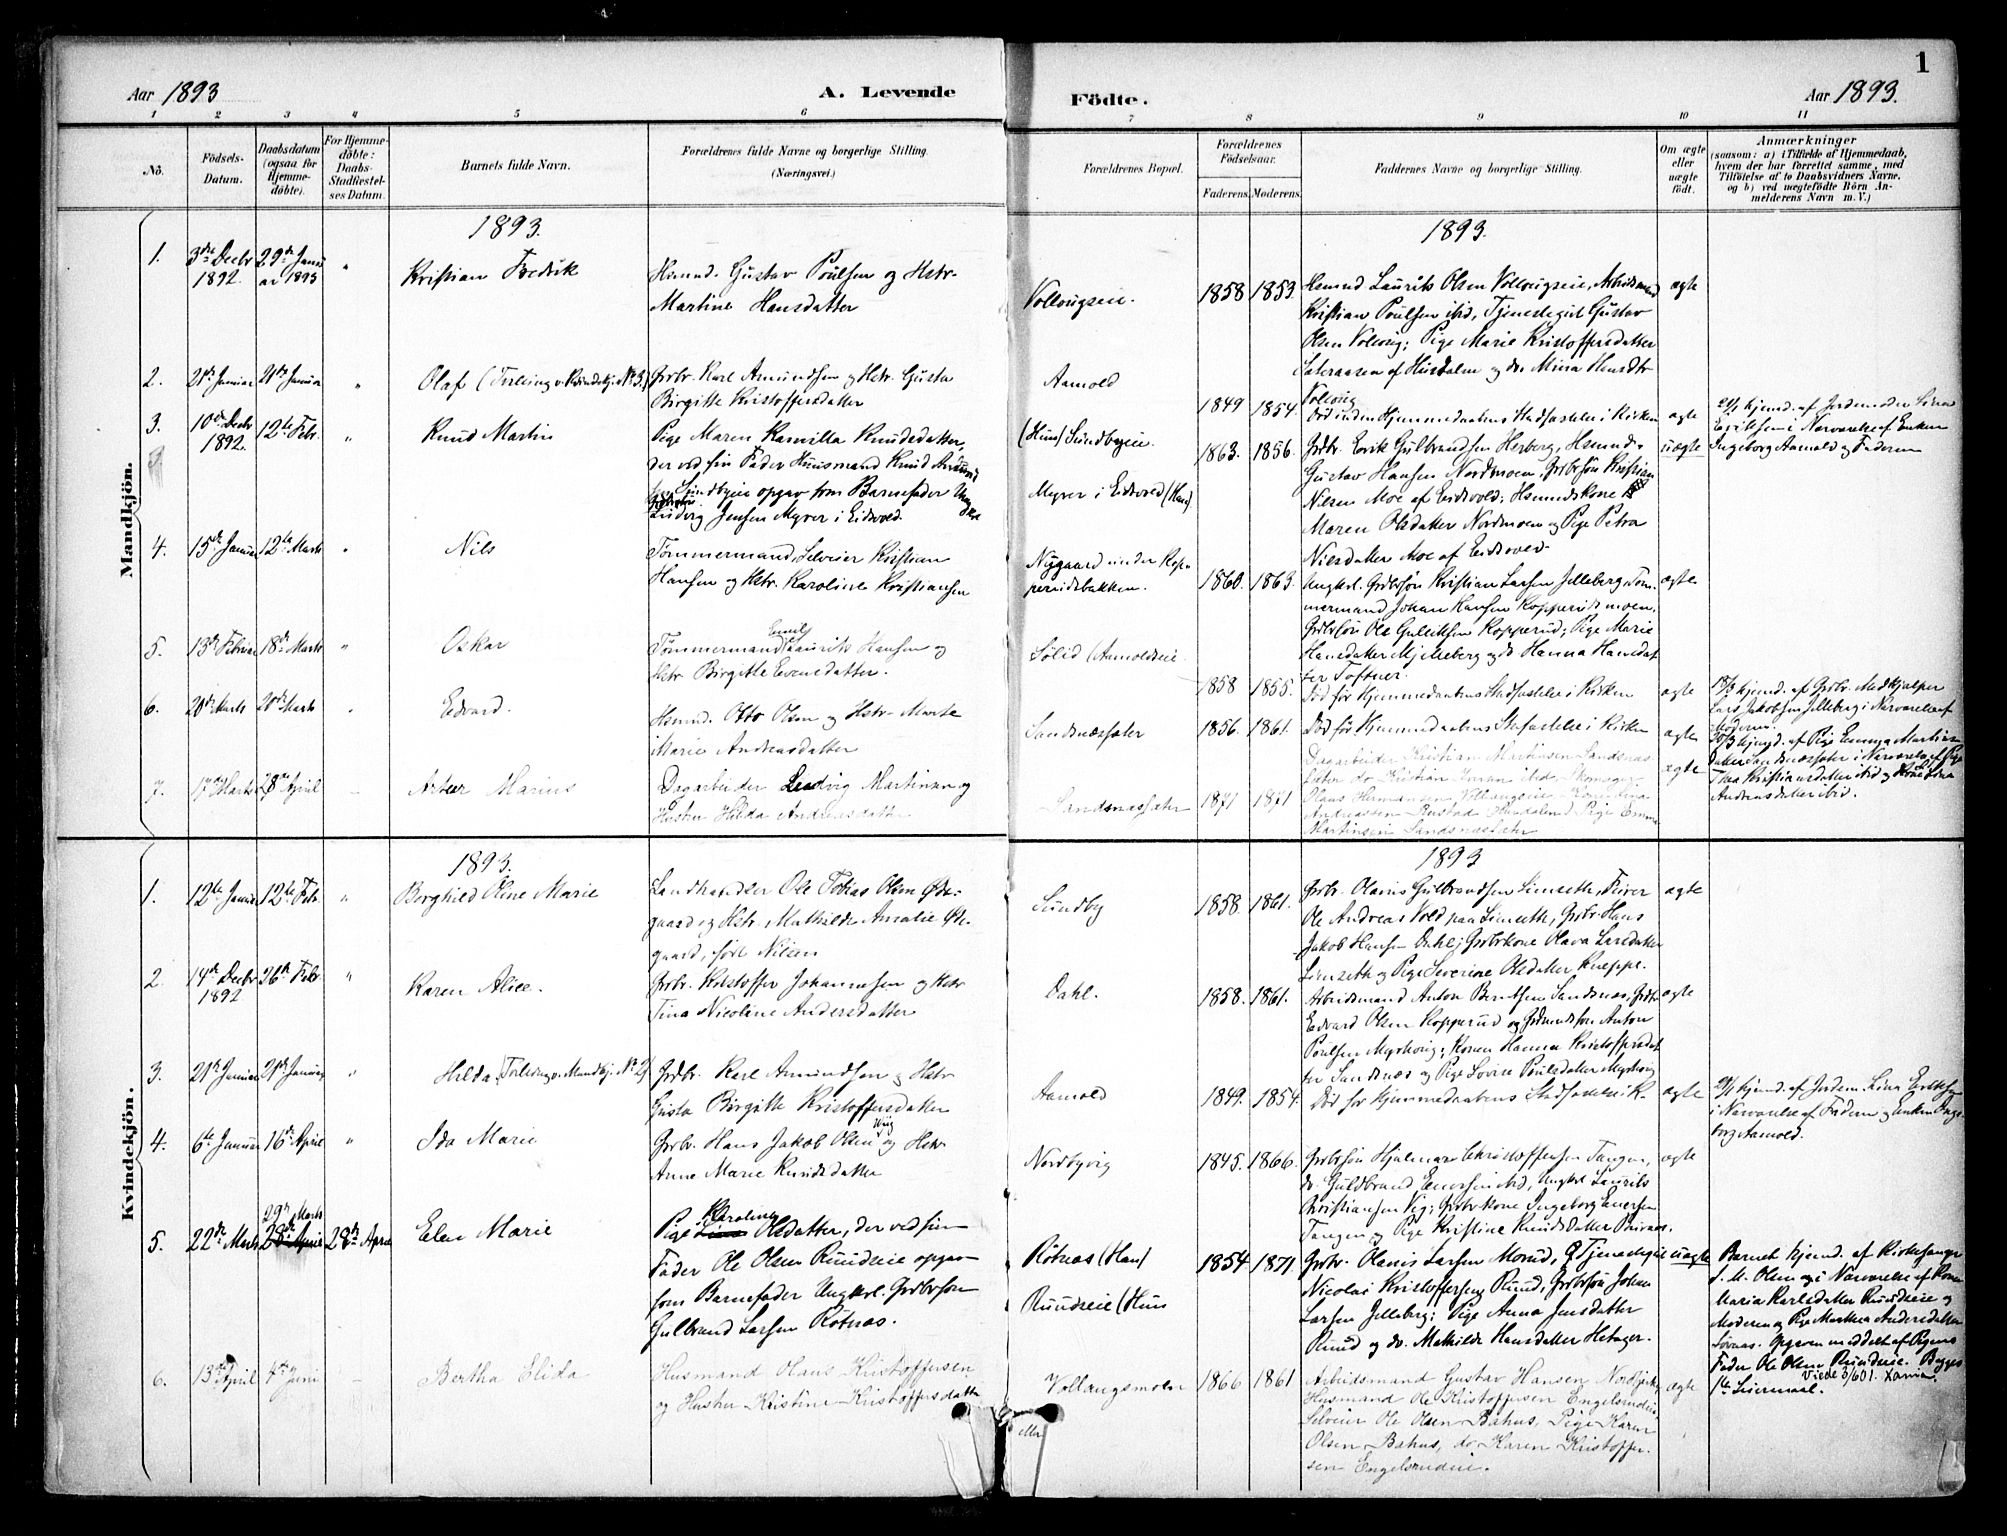 1
Aar 1893
A. Levende
Födte.
Aar 1893.
1 2 3 4 5 6 7 8 9 10 11
No.
Födsels-
Datum.
Daabsdatum
(ogsaa for
Hjemme-
døbte).
For Hjemme-
døbte:
Daabs-
Stadfæstel-
ses Datum.
Barnets fulde Navn.
Forældrenes fulde Navne og borgerlige Stilling.
(Næringsvei.)
Forældrenes Bopæl.
Forældrenes
Födselsaar.
Faderens.
Moderens.
Faddernes Navne og borgerlige Stilling.
Om ægte
eller
uægte
født.
Anmærkninger
(saasom: a) i Tilfælde af Hjemmedaab,
hvem der har forrettet samme, med
Tilføielse af to Daabsvidners Navne,
og b) ved uægtefødte Börn An-
melderens Navn m. V.)
Mandkjön.
1893.
1893.
1.
3die Decbr
1892.
29de Janu
ar 1893
"
Kristian Fredrik
Hsmnd. Gustav Poulsen og Hstr.
Martine Hansdatter
Vollougseie.
1858
1853.
Hsmnd Laurits Olsen Vollougseie, Arbeidsmand
Kristian Poulsen ibid, Tjenestegut Gustav
Olsen Volloug; Pige Marie Kristoffersdatter
af Hurdalen og do. Mina Hansdtr
Volloug
ægte
2.
21de Januar
21de Januar
"
Olaf (Tvilling v. Kvindekj. No 3.)
Grdbr. Karl Amundsen og Hstr. Gusta
Birgitte Kristoffersdatter
Aamold
1849
1854.
Død inden Hjemmedaabens Stadfæstelse i Kirken
ægte
21/1 hjemd. af Jordemoder Lina
i Nærværelse af Enken
Ingeborg Aamold og Faderen
3.
10de Decbr
1892.
12te Febr.
"
Knud Martin
Pige Maren Kamilla Knudsdatter,
der ved sin Fader Huusmand Knud
Sundbyeie opgav som Barnefader
Ludvig Jensen Myrer i Eidsvold.
(Hun) Sundbyeie.
Myrer i Eidsvold (Han)
1863.
1856.
Grdbr. Erik Gulbrandsen Herberg, Hsmnd.
Gustav Hansen Nordmoen, Grdbrsøn Kristian
Nilsen Moe af Eidsvold; Hsmndskone
Maren Olsdatter Nordmoen og Pige Petra
Nilsdatter Moe af Eidsvold.
uægte
4.
15de Januar
12te Marts
"
Nils
Tømmermand, Selveier Kristian
Hansen og Hstr. Karoline Kristiansen
Nygaard under Kop-
perudsbakken.
1860.
1863.
Ungkrl. Grdbrsøn Kristian Larsen Jelleberg, Tøm-
mermand Johan Hansen Kopperudsmoen,
Grdbrsøn Ole Gulliksen Kopperud; Pige Marie
Hansdatter Mjelleberg og do Hanna Hansdat-
ter Toftner.
ægte
5.
13de Februar
18de Marts
"
Oskar
Emil
Tømmermand Laurits Hansen og
Hstr Birgitte Evensdatter.
Sølid (Aamoldseie
1858
1855.
Død før Hjemmedaabens Stadfæstelse i Kirken
ægte
18/3 hjemd. af Grdbr. Medhjælper
Lars Jakobsen Jelleberg i Nærværelse af
Moderen.
6.
20de Marts
20de Marts
"
Edvard.
Hsmnd. Otto Olsen og Hstr. Marte
Marie Andreasdatter
Sandsnæssæter
1856.
1861.
Død før Hjemmedaabens Stafæstelse i Kirken
ægte
20/3 hjemd. af Pige Emma Martins-
datter Sandsnæssæter i Nærværelse af Pige
Thea Kristiansdatter ibid og Kone
Andreasdatter ibid.
7.
17de Marts
28de April
–
Artur Marius
Dagarbeider Ludvig Martinsen og
Hustru Hilda Andreasdatter
Sandsnæssæter
1871
1871
Dagarbeider Kristian Martinsen Sandsnæs-
sæter do Kristian ibid. Skomager
Olaus Hermansen Vollaugseie
Andreassen Rustad Hurdalen Pige Emma
Martinsen Sandsnæssæter
ægte
Kvindekjön.
1893.
1893
1.
12te Januar
12te Febr.
"
Borghild Oline Marie
Landhandler Ole Tobias Olsen Øde-
gaard og Hstr. Mathilde Amalie Øde-
gaard, født Nilsen
Sundby
1858.
1861.
Grdbr. Olaus Gulbrandsen Limseth,
Ole Andreas Vold paa Limseth, Grdbr. Hans
Jakob Hansen Dahl; Grdbrkone Olava Larsdatter
Limseth og Pige Severine Olsdatter
ægte
2.
14de Decbr
1892
26de Febr
"
Karen Alice.
Grdbr. Kristoffer Johannesen og Hstr
Tina Nicoline Andersdatter
Dahl.
1858.
1861.
Arbeidsmand Anton Berntsen Sandsnæs, Grdbr
Edvard Olsen Kopperud og Anton
Poulsen; Konen Hanna Kristoffersdat-
ter Sandsnæs og Pige Lovise Poulsdatter
ægte
3.
21de Januar
21de Januar
"
Hilda (Tvilling v. Mandkj. No 2)
Grdbr. Karl Amundsen og Hstr
Gusta Birgitte Kristoffersdatter
Aamold
1849.
1854.
Død før Hjemmedaabens Stadfæstelse i K.
ægte
21/1 hjemd. af Jordem. Lina
i Nærværelse af Faderen og Enken Inge-
borg Aamold.
4.
6te Januar
16de April
"
Ida Marie
Grdbr. Hans Jakob Olsen Viig og Hstr
Anne Marie Knudsdatter
Nordbyvig
1845.
1866.
Grdbrsøn Hjalmar Christoffersen Tangen,
do. Guldbrand Enersen ibid, Ungkrl Laurits
Christiansen Vig; Grdbrkone Ingeborg Enersen
Tangen og Pige Kristine Knudsdatter
ægte
5.
22de Marts
29de Marts
28de April
28de April
Elen Marie
Karoline
Pige Olsdatter, der ved sin
Fader Ole Olsen Ruudseie opgav
som Barnefader Ungkrl. Grdbrsøn
Gulbrand Larsen Røtnæs.
Røtnæs (Han)
Ruudseie (Hun
1854
1871.
Grdbr. Olaus Larsen Morud, Tjenestegut
Nicolai Kristoffersen Ruud, Grdbrsøn Johan
Larsen Jelleberg; Pige Anna Jensdatter
Ruud og do. Mathilde Hansdatter Hetager.
uægte
Barnet hjemd. af Kirkesanger
S. M. Olsen og i Nærværelse af Konen
Maria Karlsdatter Ruudseie og
Moderen og Pige Marthea Andersdatter
Sørnæs. Opgaven meddelt af Pigens
Fader Ole Olsen Ruudseie. Begges
1ste Leiermaal.
6.
13de April
4de Juni
–
Bertha Elida
Husmand Olaus Kristoffersen
og Hustru Kristine Kristoffersdatter
Vollaugsmoen
1866
1861
Arbeidsmand Gustav Hansen Nordbyeie,
Husmand Ole Kristoffersen Engelsrudeie,
Selveier Ole Olsen Bahus, Pige Karen
Olsen Bahus, do Karen Kristoffer-
sen Engelsrudeie.
ægte